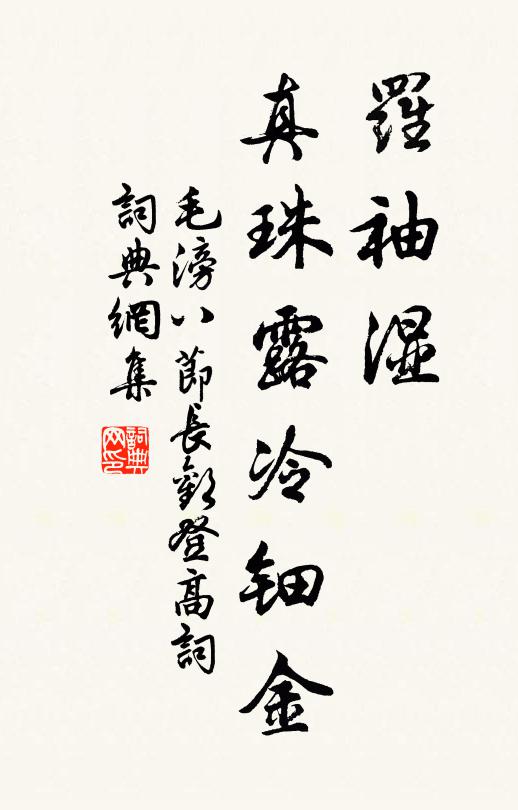 羅袖濕
真珠露冷鈿金
毛滂八節長歡登高詞
詞典網集
詞典
网印